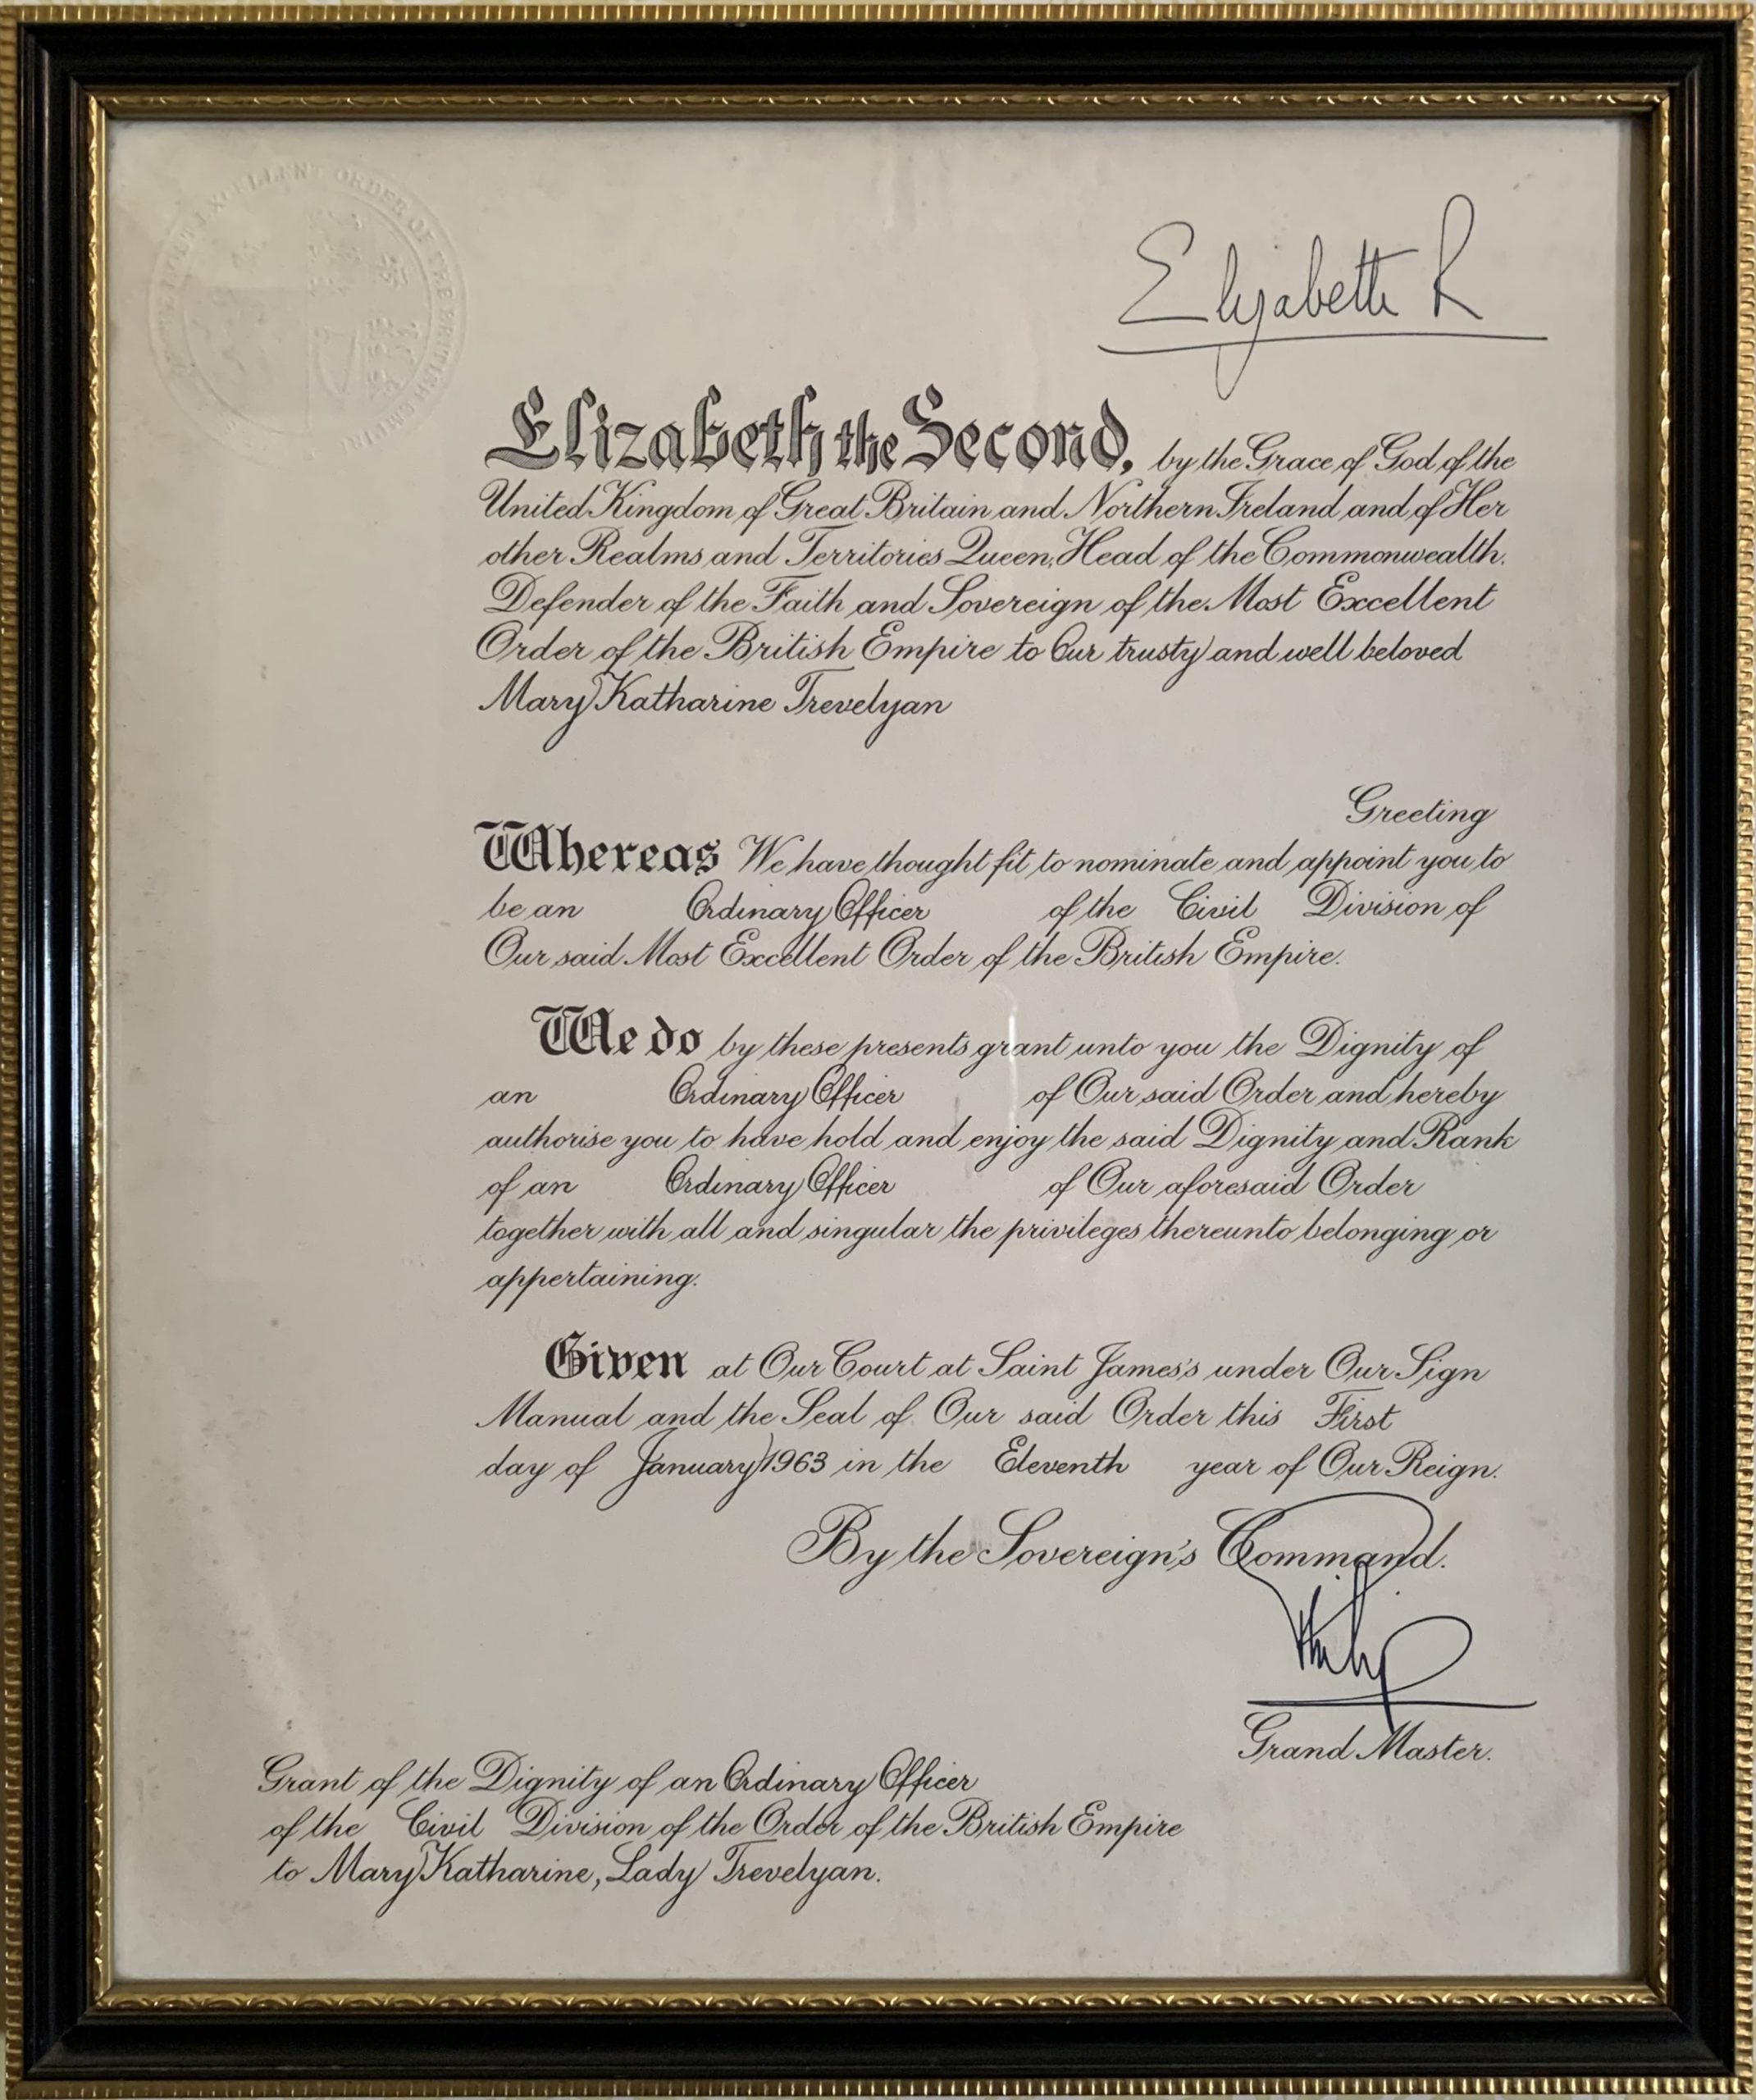 MOST EXCELLENT ORDER OF THE BRITISH EMPIRE
Elizabeth R
Elizabeth the Second, by the Grace of God of the
United Kingdom of Great Britain and Northern Ireland and of Her
other Realms and Territories Queen, Head of the Commonwealth,
Defender of the Faith and Sovereign of the Most Excellent
Order of the British Empire to Our trusty and well beloved
Mary Katharine Trevelyan
Greeting
Whereas We have thought fit to nominate and appoint you to
be an Ordinary Officer of the Civil Division of
Our said Most Excellent Order of the British Empire.
We do by these presents grant unto you the Dignity of
an Ordinary Officer of Our said Order and hereby
authorise you to have hold and enjoy the said Dignity and Rank
of an Ordinary Officer of Our aforesaid Order
together with all and singular the privileges thereunto belonging or
appertaining.
Given at Our Court at Saint James's under Our Sign
Manual and the Seal of Our said Order this First
day of January 1963 in the Eleventh year of Our Reign.
By the Sovereign's Command.
Philip
Grand Master.
Grant of the Dignity of an Ordinary Officer
of the Civil Division of the Order of the British Empire
to Mary Katharine, Lady Trevelyan.